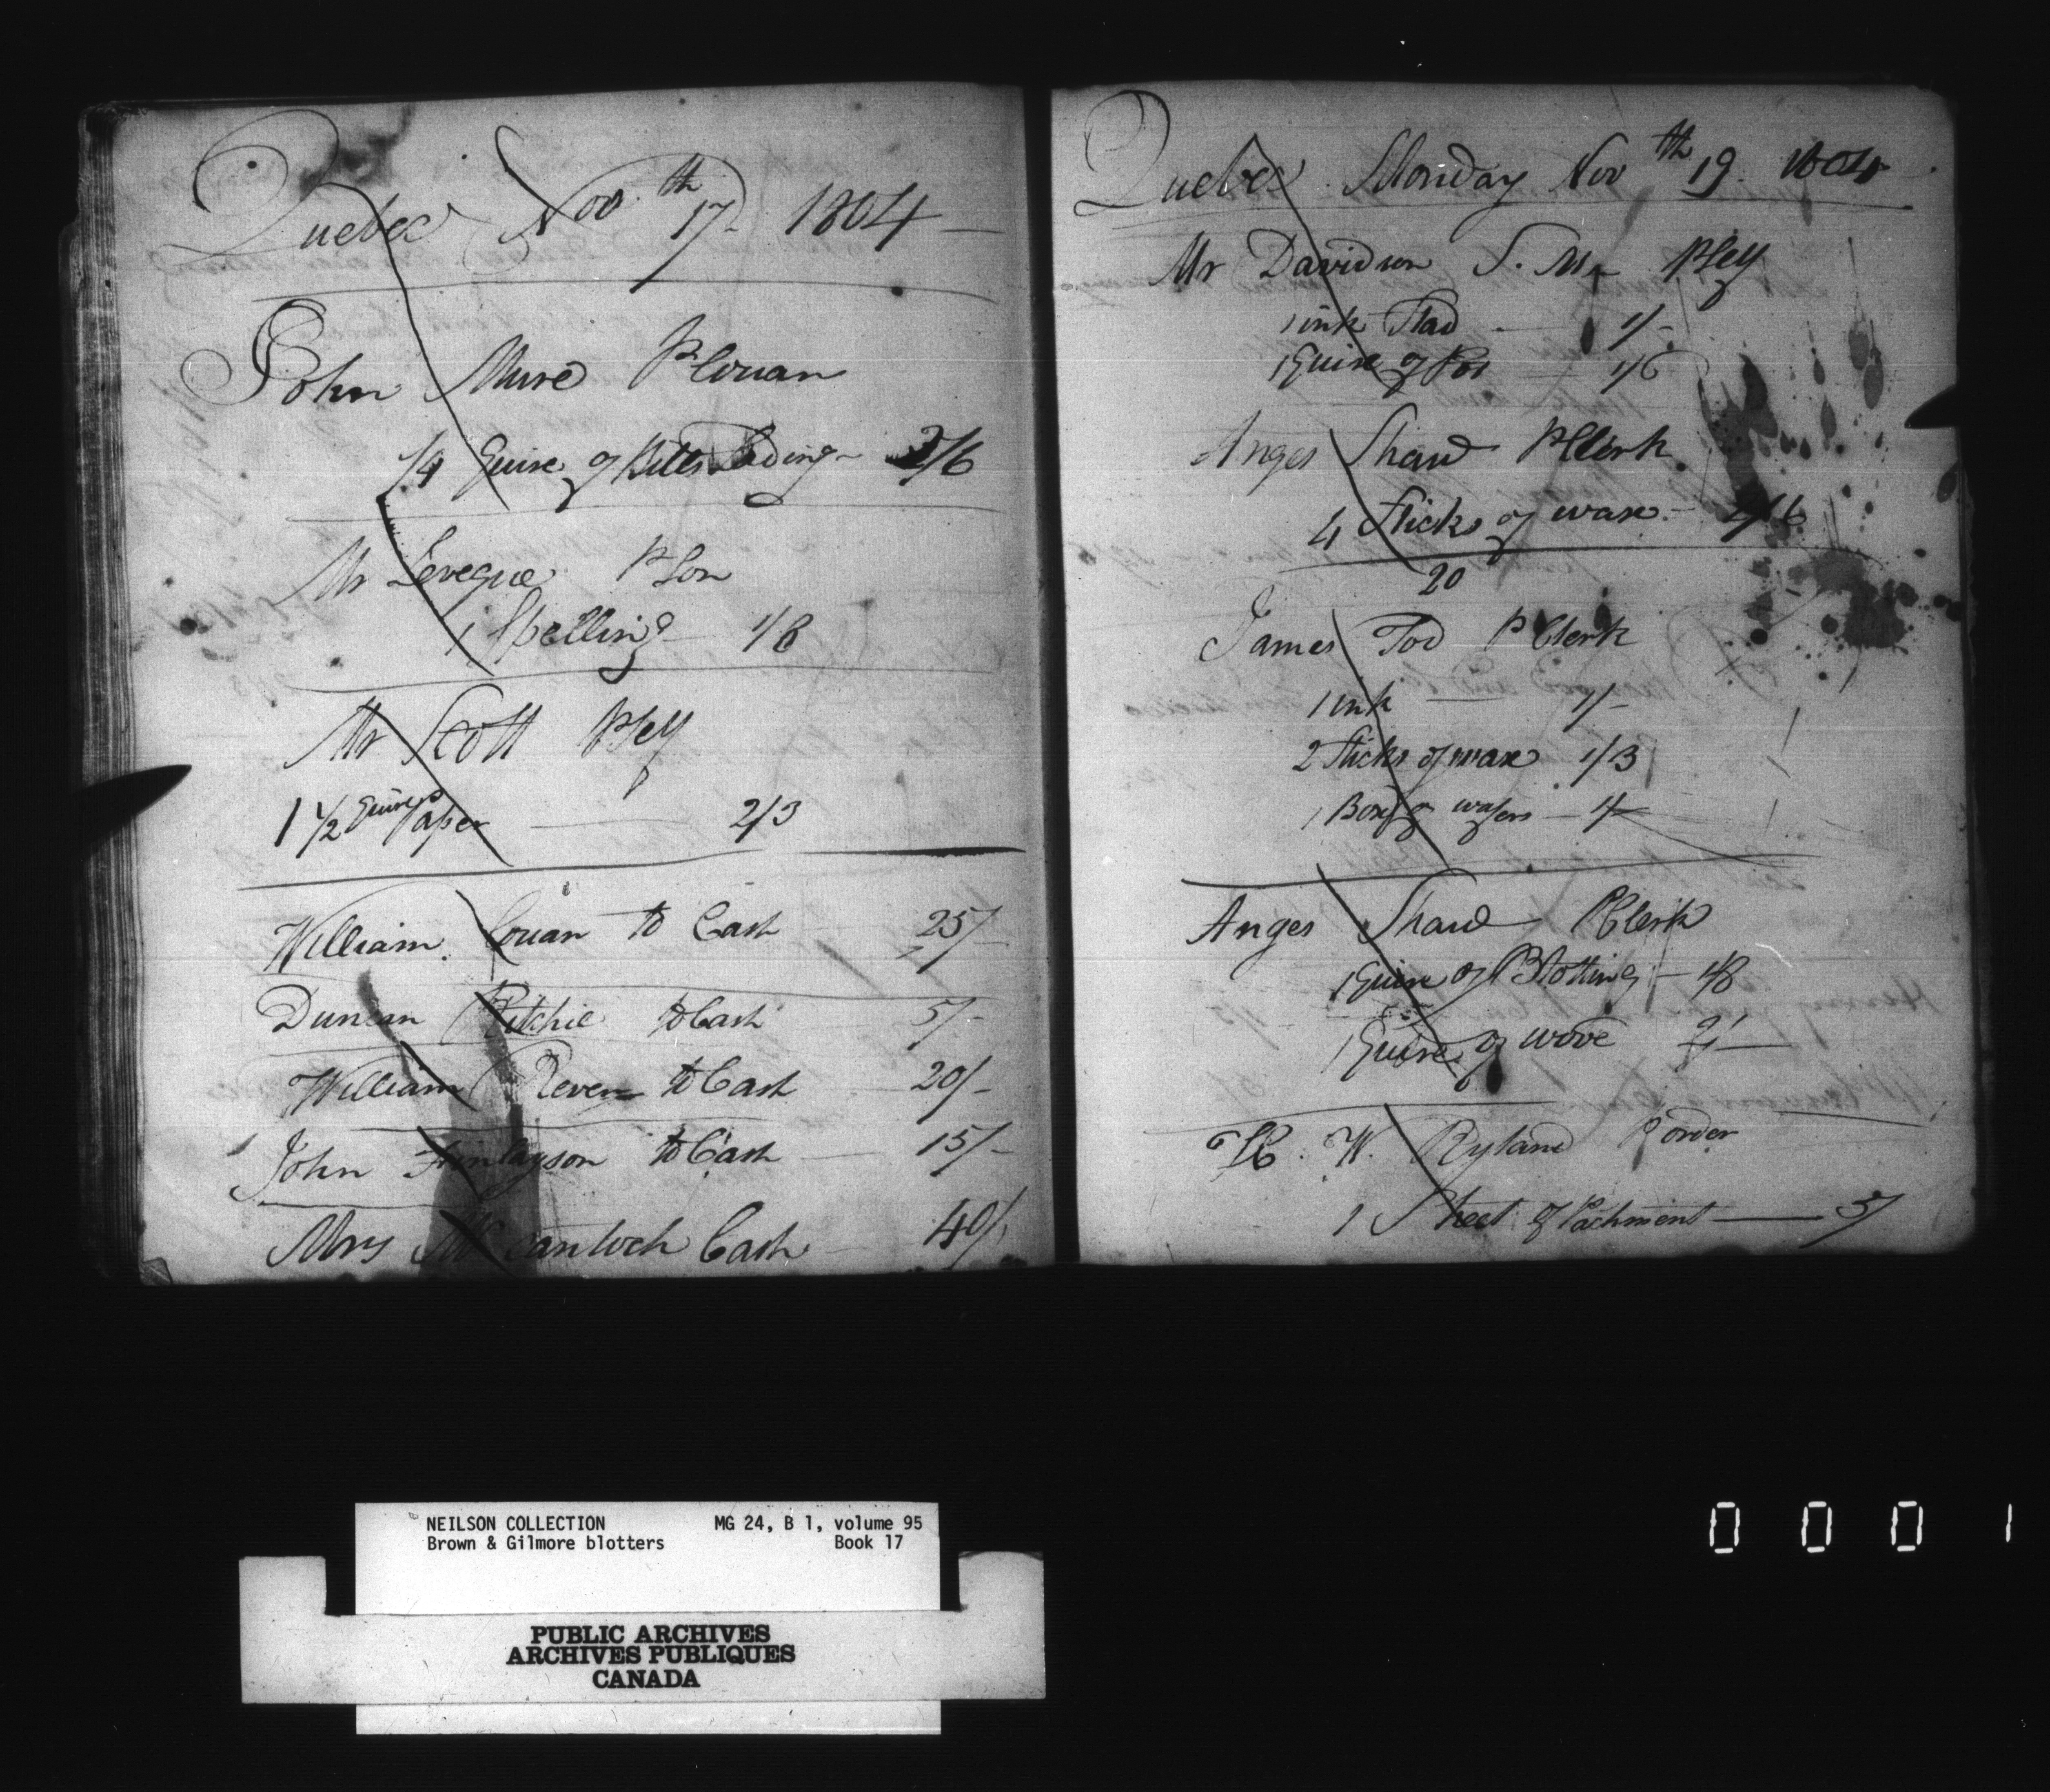 Quebec Nov th 17 1804
John Mure P Couan
1/4 Quire of Bills Lading 2/6
Mr Leveque P Son
1 Spelling 1/8
Mr Scott Psey
1 1/2 Quire Paper 2/3
William Couan to Cash 25/
Duncan Ritchie to Cash 5/-
William Reven to Cash 20/-
John Finlayson to Cash 15/-
Mrs Cash 40/
Quebec Monday Nov th 19 1804
Mr Davidson S. M. Psey
1 ink Stad 1/-
1 Quire of Pot 1/6
Anges Shaw P Clerk
4 Sticks of wax 2/6
20
James Tod P Clerk
1 ink 1/-
2 Sticks of wax 1/3
1 Box of wafers 1/
Anges Shaw P Clerk
1 Quire of Blotting 1/8
1 Quire of wove 2/-
H. W. Ryland P order
1 Sheet of Pachment 5/
NEILSON COLLECTION MG 24, B 1, volume 95
Brown & Gilmore blotters Book 17
PUBLIC ARCHIVES
ARCHIVES PUBLIQUES
CANADA
0 0 0 1